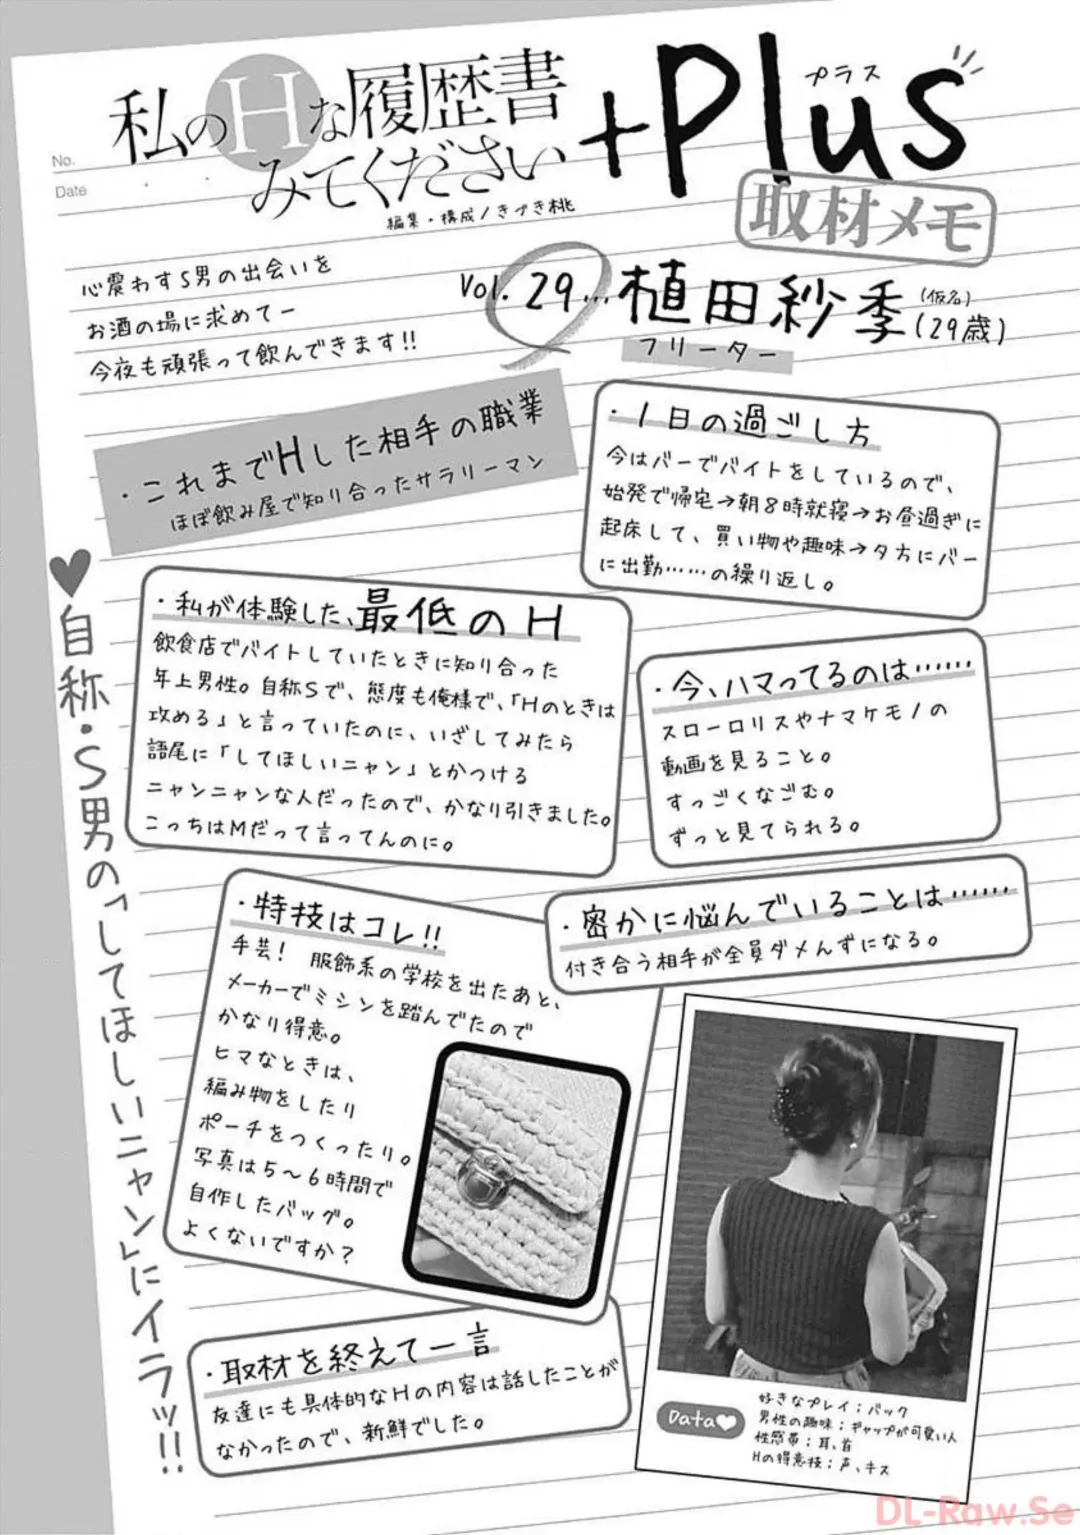 No.
Date
私のHな履歴書
みてください
+Plus
プラス
編集・構成/きづき桃
取材メモ
心震わすS男の出会いを
お酒の場に求めてー
今夜も頑張って飲んできます!!
Vol.29…植田紗季(仮名)(29歳)
フリーター
・これまでHした相手の職業
ほぼ飲み屋で知り合ったサラリーマン
・1日の過ごし方
今はバーでバイトをしているので、
始発で帰宅→朝8時就寝→お昼過ぎに
起床して、買い物や趣味→夕方にバー
に出勤……の繰り返し。
♥自称・S男の「してほしいニャン」にイラッ!!
・私が体験した、最低のH
飲食店でバイトしていたときに知り合った
年上男性。自称Sで、態度も俺様で、「Hのときは
攻める」と言っていたのに、いざしてみたら
語尾に「してほしいニャン」とかつける
ニャンニャンな人だったので、かなり引きました。
こっちはMだって言ってんのに。
・今、ハマってるのは……
スローロリスやナマケモノの
動画を見ること。
すっごくなごむ。
ずっと見てられる。
・特技はコレ!!
手芸! 服飾系の学校を出たあと、
メーカーでミシンを踏んでたので
かなり得意。
ヒマなときは、
編み物をしたり
ポーチをつくったり。
写真は5〜6時間で
自作したバッグ。
よくないですか?
・密かに悩んでいることは……
付き合う相手が全員ダメんずになる。
・取材を終えて一言
友達にも具体的なHの内容は話したことが
なかったので、新鮮でした。
Data♥
好きなプレイ;バック
男性の趣味;ギャップが可愛い人
性感帯;耳、首
Hの得意技;声、キス
DL-Raw.Se